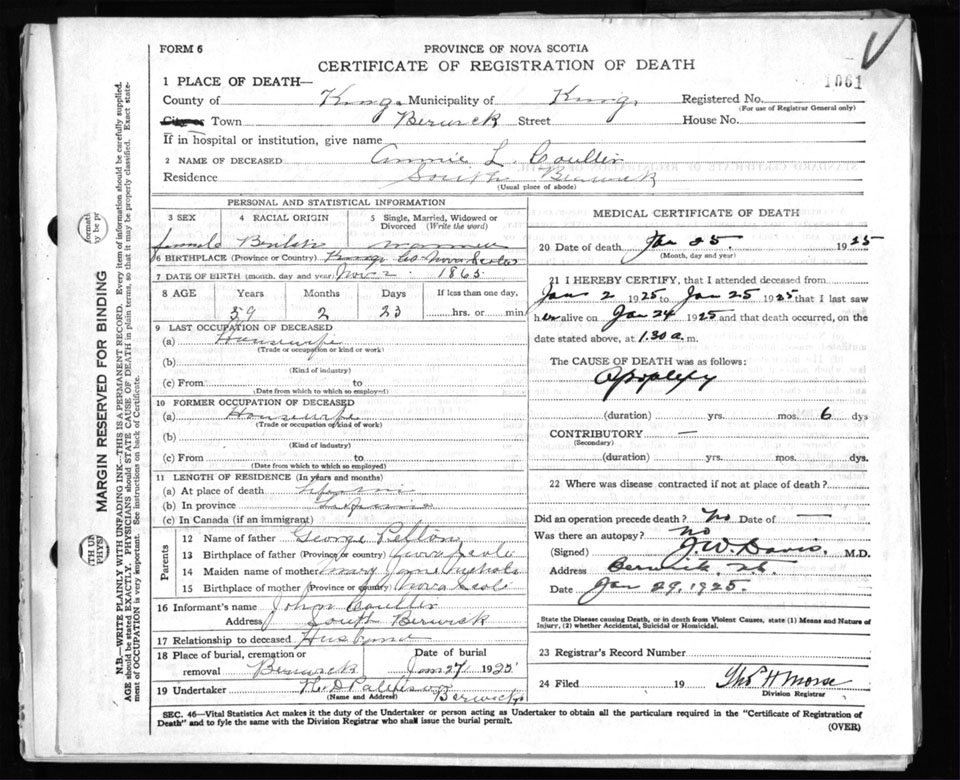 FORM 6
PROVINCE OF NOVA SCOTIA
CERTIFICATE OF REGISTRATION OF DEATH
1061
1 PLACE OF DEATH—
County of Kings Municipality of Kings Registered No.
(For use of Registrar General only)
City or Town Berwick Street House No.
If in hospital or institution, give name
2 NAME OF DECEASED Annie L. Coulter
Residence South Berwick
(Usual place of abode)
PERSONAL AND STATISTICAL INFORMATION
3 SEX 4 RACIAL ORIGIN 5 Single, Married, Widowed or Divorced (Write the word)
female British
6 BIRTHPLACE (Province or Country) Kings Co. Nova Scotia
7 DATE OF BIRTH (month, day and year) Nov 2 1865
8 AGE Years Months Days If less than one day,
59 2 23 hrs. or min
9 LAST OCCUPATION OF DECEASED
(a) Housewife
(Trade or occupation or kind or work)
(b)
(Kind of industry)
(c) From to
(Date from which to which so employed)
10 FORMER OCCUPATION OF DECEASED
(a) Housewife
(Trade or occupation or kind of work)
(b)
(Kind of industry)
(c) From to
(Date from which to which so employed)
11 LENGTH OF RESIDENCE (In years and months)
(a) At place of death
(b) In province
(c) In Canada (if an immigrant)
Parents
12 Name of father George
13 Birthplace of father (Province or country) Nova Scotia
14 Maiden name of mother Mary Jane Nichols
15 Birthplace of mother (Province or country) Nova Scoti
16 Informant's name John Coulter
Address South Berwick
17 Relationship to deceased Husband
18 Place of burial, cremation or removal Berwick Date of burial Jan 27 1925
19 Undertaker Berwick
(Name and Address)
MEDICAL CERTIFICATE OF DEATH
20 Date of death Jan 25. 1925
(Month, day and year)
21 I HEREBY CERTIFY, that I attended deceased from
Jan 2 1925 to Jan 25 1925 that I last saw
her alive on Jan 24 1925 and that death occurred, on the
date stated above, at 1.30 a.m.
The CAUSE OF DEATH was as follows:
Apoplexy
(duration) yrs. mos. 6 dys
CONTRIBUTORY —
(Secondary)
(duration) yrs. mos. dys.
22 Where was disease contracted if not at place of death?
Did an operation precede death? No Date of —
Was there an autopsy? No
(Signed) J. W. Davis. M.D.
Address Berwick, N.S.
Date Jan 29, 1925.
State the Disease causing Death, or in death from Violent Causes, state (1) Means and Nature of
Injury, (2) whether Accidental, Suicidal or Homicidal.
23 Registrar's Record Number
24 Filed 19 Thos H Morse
Division Registrar
SEC. 46—Vital Statistics Act makes it the duty of the Undertaker or person acting as Undertaker to obtain all the particulars required in the "Certificate of Registration of
Death" and to fyle the same with the Division Registrar who shall issue the burial permit.
(OVER)
MARGIN RESERVED FOR BINDING
N.B.—WRITE PLAINLY WITH UNFADING INK—THIS IS A PERMANENT RECORD. Every item of information should be carefully supplied.
AGE should be stated EXACTLY. PHYSICIANS should STATE CAUSE OF DEATH in plain terms, so that it may be properly classified. Exact state-
ment of OCCUPATION is very important. See instructions on back of Certificate.